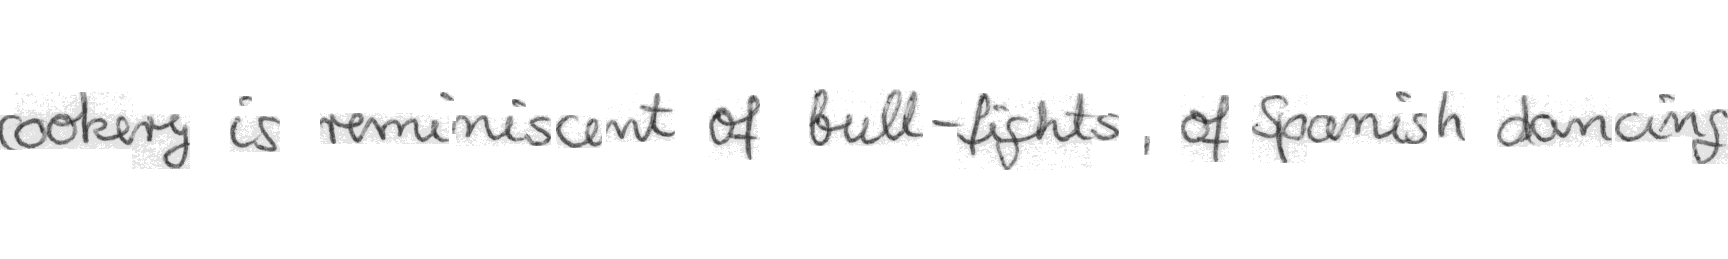 cookery is reminiscent of bull-fights, of Spanish dancing